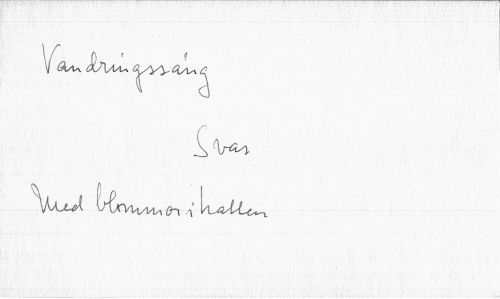 Vandringssång
Svar
Med blommor i hatten